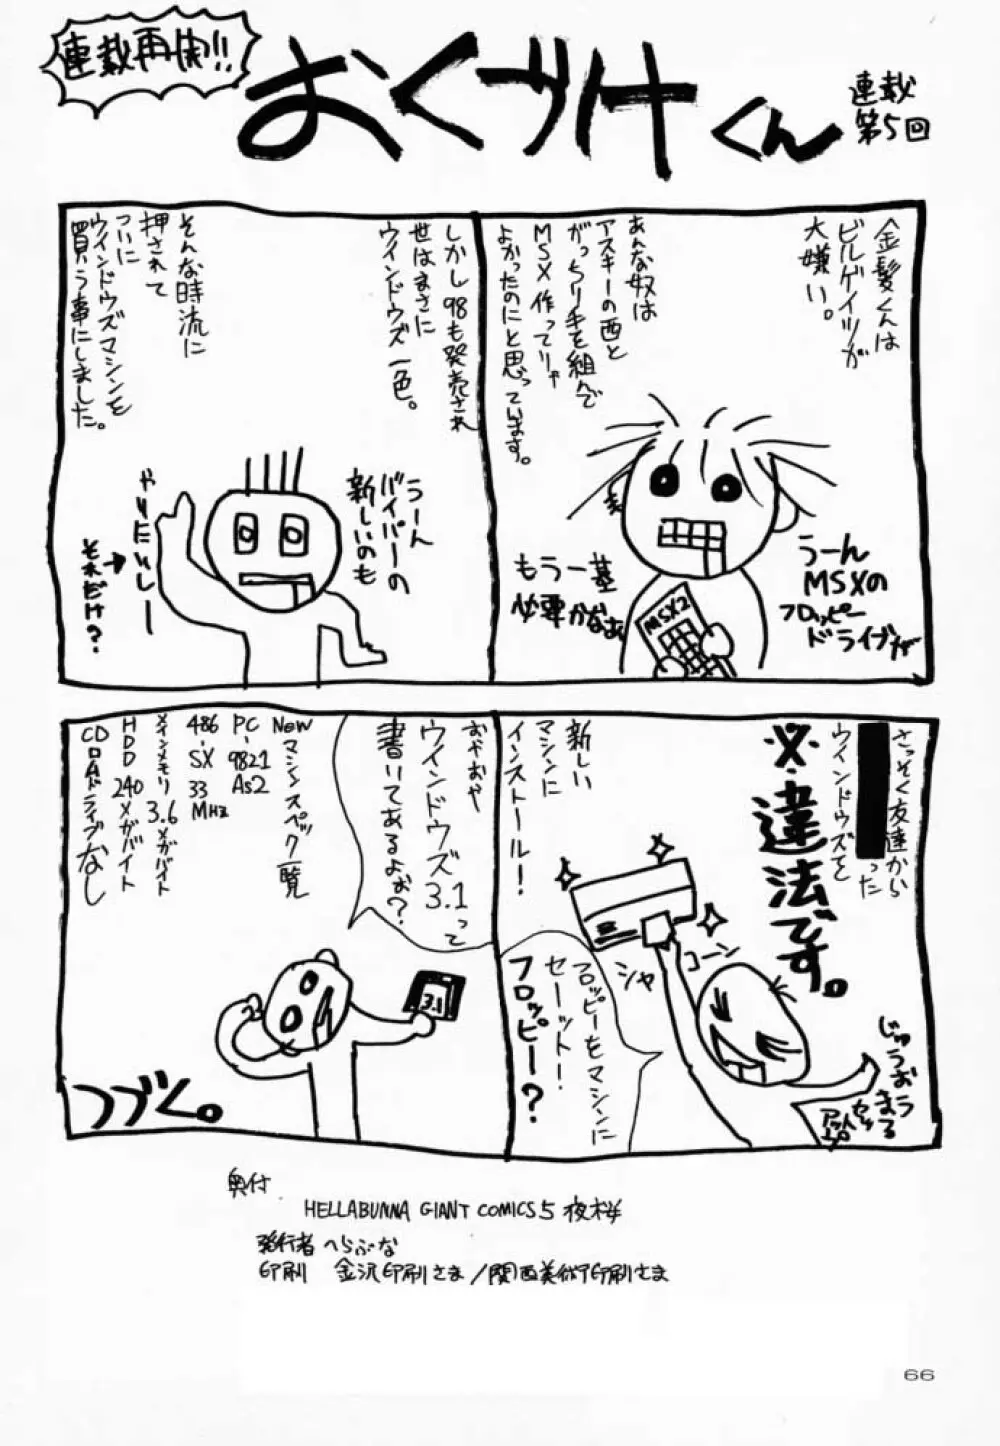 連載再開!!
おくづけくん
連載
第5回
金髪くんは
ビルゲイツが
大嫌い。
あんな奴は
アスキーの西と
がっちり手を組んで
MSX作ってりゃ
よかったのにと思っています。
うーん
MSXの
フロッピー
ドライブが
もう一基
必要かなぁ
MSX2
しかし98も発売され
世はまさに
ウインドウズ一色。
そんな時流に
押されて
ついに
ウインドウズマシンを
買う事にしました。
うーん
バイパーの
新しいのも
やりたいしー
それだけ?
さっそく友達から
った
ウインドウズを
※違法です。
新しい
マシンに
インストール!
シャ
コーン
フロッピーをマシンに
セーット!
フロッピー?
じゅうおう
まる
おやおや
ウインドウズ3.1って
書いてあるよぉ?
3.1
Newマシンスペック一覧
PC-9821As2
486-SX 33MHz
メインメモリ 3.6メガバイト
HDD 240メガバイト
CDロムドライブなし
つづく。
奥付
HELLABUNNA GIANT COMICS 5 夜桜
発行者 へらぶな
印刷 金沢印刷さま/関西美術印刷さま
66